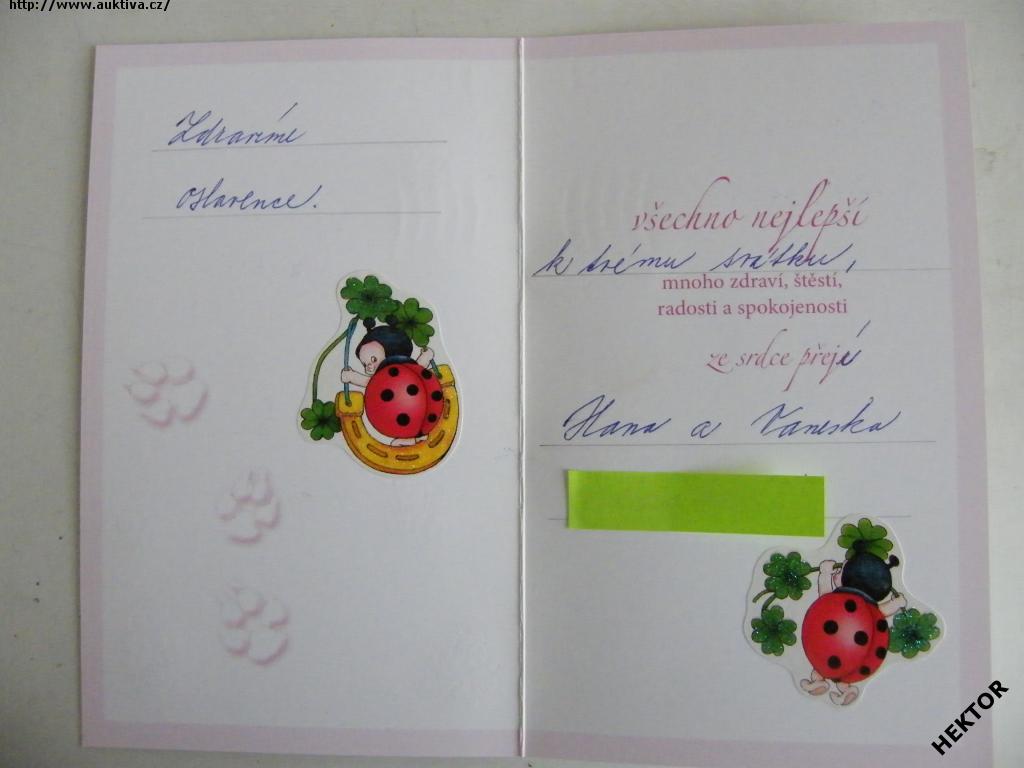 http://www.auktiva.cz/
Zdravíme
oslavence.
všechno nejlepší
k tvému svátku,
mnoho zdraví, štěstí,
radosti a spokojenosti
ze srdce přejí
Hana a Vaneska
HEKTOR